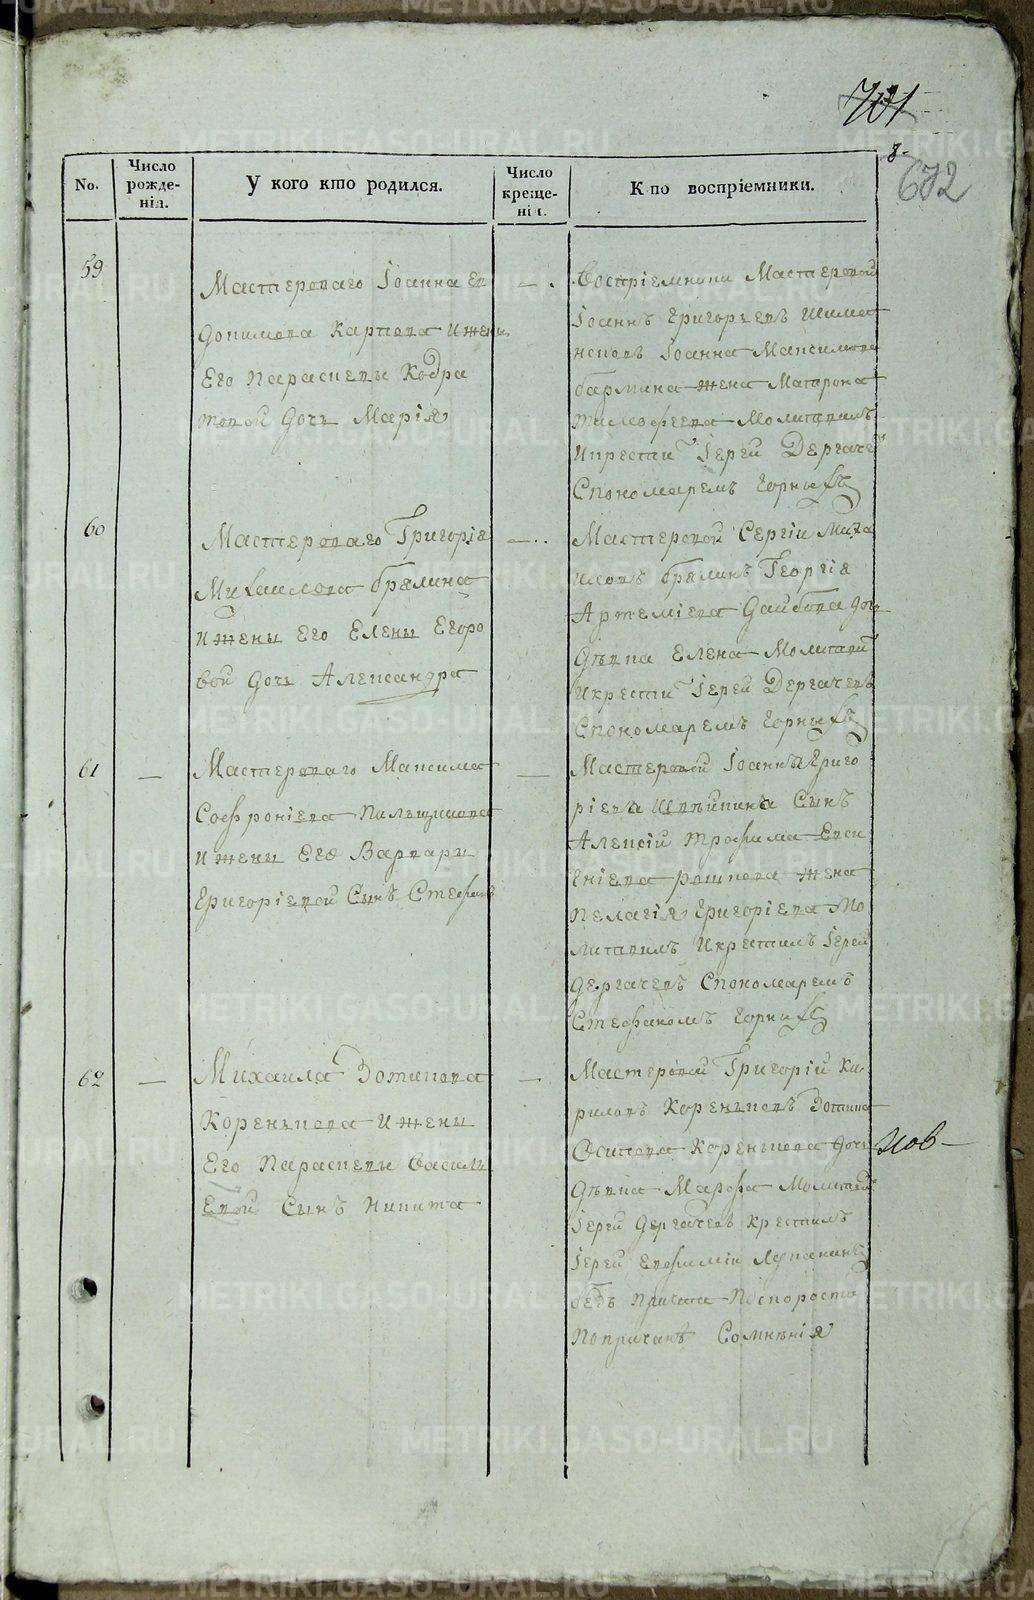 701
8.
672
No.
Число рожде-нія.
У кого кто родился.
Число креще-нія.
Кто воспріемники.
59
Мастероваго Іоанна Ев
докимова Карпова и жены
Его Параскевы Кодра
товой дочь Марія
Воспріемники Мастеровой
Іоаннъ Григорьевъ Шима
нсковъ Іоанна Максимова
бармина жена Матрона
тимофеева Молитвилъ
и крести Іерей Дергачев
Спономаремъ Горных
60
Мастероваго Григорія
Михаилова брялина
и жены Его Елены Егоро
вой дочь Александра
Мастеровой Сергіи Миха
иловъ брялинъ Георгія
Артеміева дочь
дѣвка Елена Молитвил
и крести Іерей Дергачевъ
Спономаремъ Горных
61
Мастероваго Максима
Софроніева Пильщикова
и жены Его Варвары
Григоріевой Сынъ Стефанъ
Мастеровой Іоанна Григо
ріева Швѣйкина Сынъ
Алексій трофима Евси
гніева рошкова жена
Пелагія Григоріева Мо
литвилъ и крестилъ Іерей
дергачевъ Спономаремъ
Стефаномъ Горных
62
Михаила Зотикова
Коренькова и жены
Его Параскевы Василь
Евой Сынъ Никита
Мастеровой Григорій Ки
риловъ Кореньковъ Зотика
Осипова Коренькова дочь
дѣвка Марфа Молитвил
Іерей дергачевъ крестилъ
Іерей Евфиміи
безъ Причта Поскорости
По причинѣ Сомнѣнія
Иов
METRIKI.GASO-URAL.RU